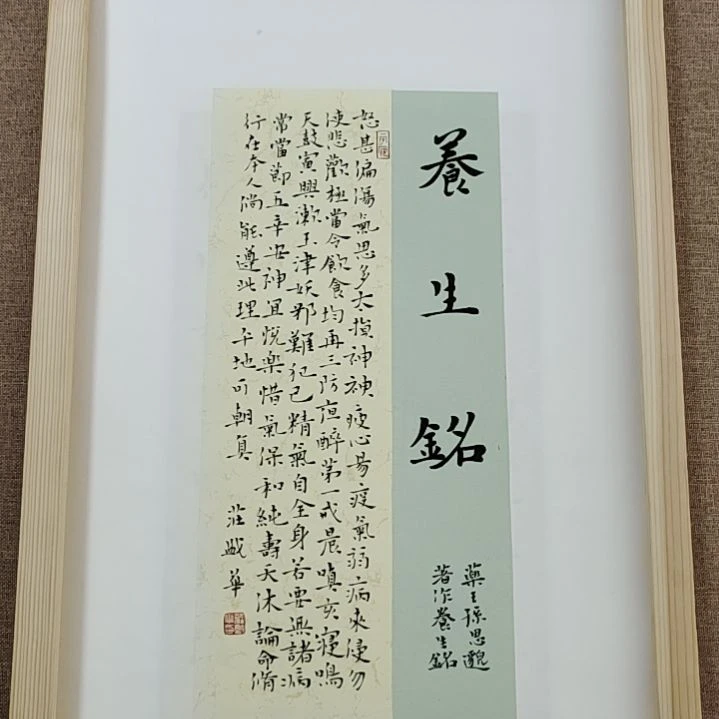 養生銘
藥王孫思邈
著作養生銘
怒甚偏傷氣思多太損神神疲心易疫氣弱病來侵勿
使悲歡極當令飲食均再三防夜醉第一戒晨嗔亥寢鳴
天鼓寅興漱玉津妖邪難犯己精氣自全身若要無諸病
常當節五辛安神宜悅樂惜氣保和純壽夭休論命脩
行在本人倘能遵此理平地可朝真
莊 華